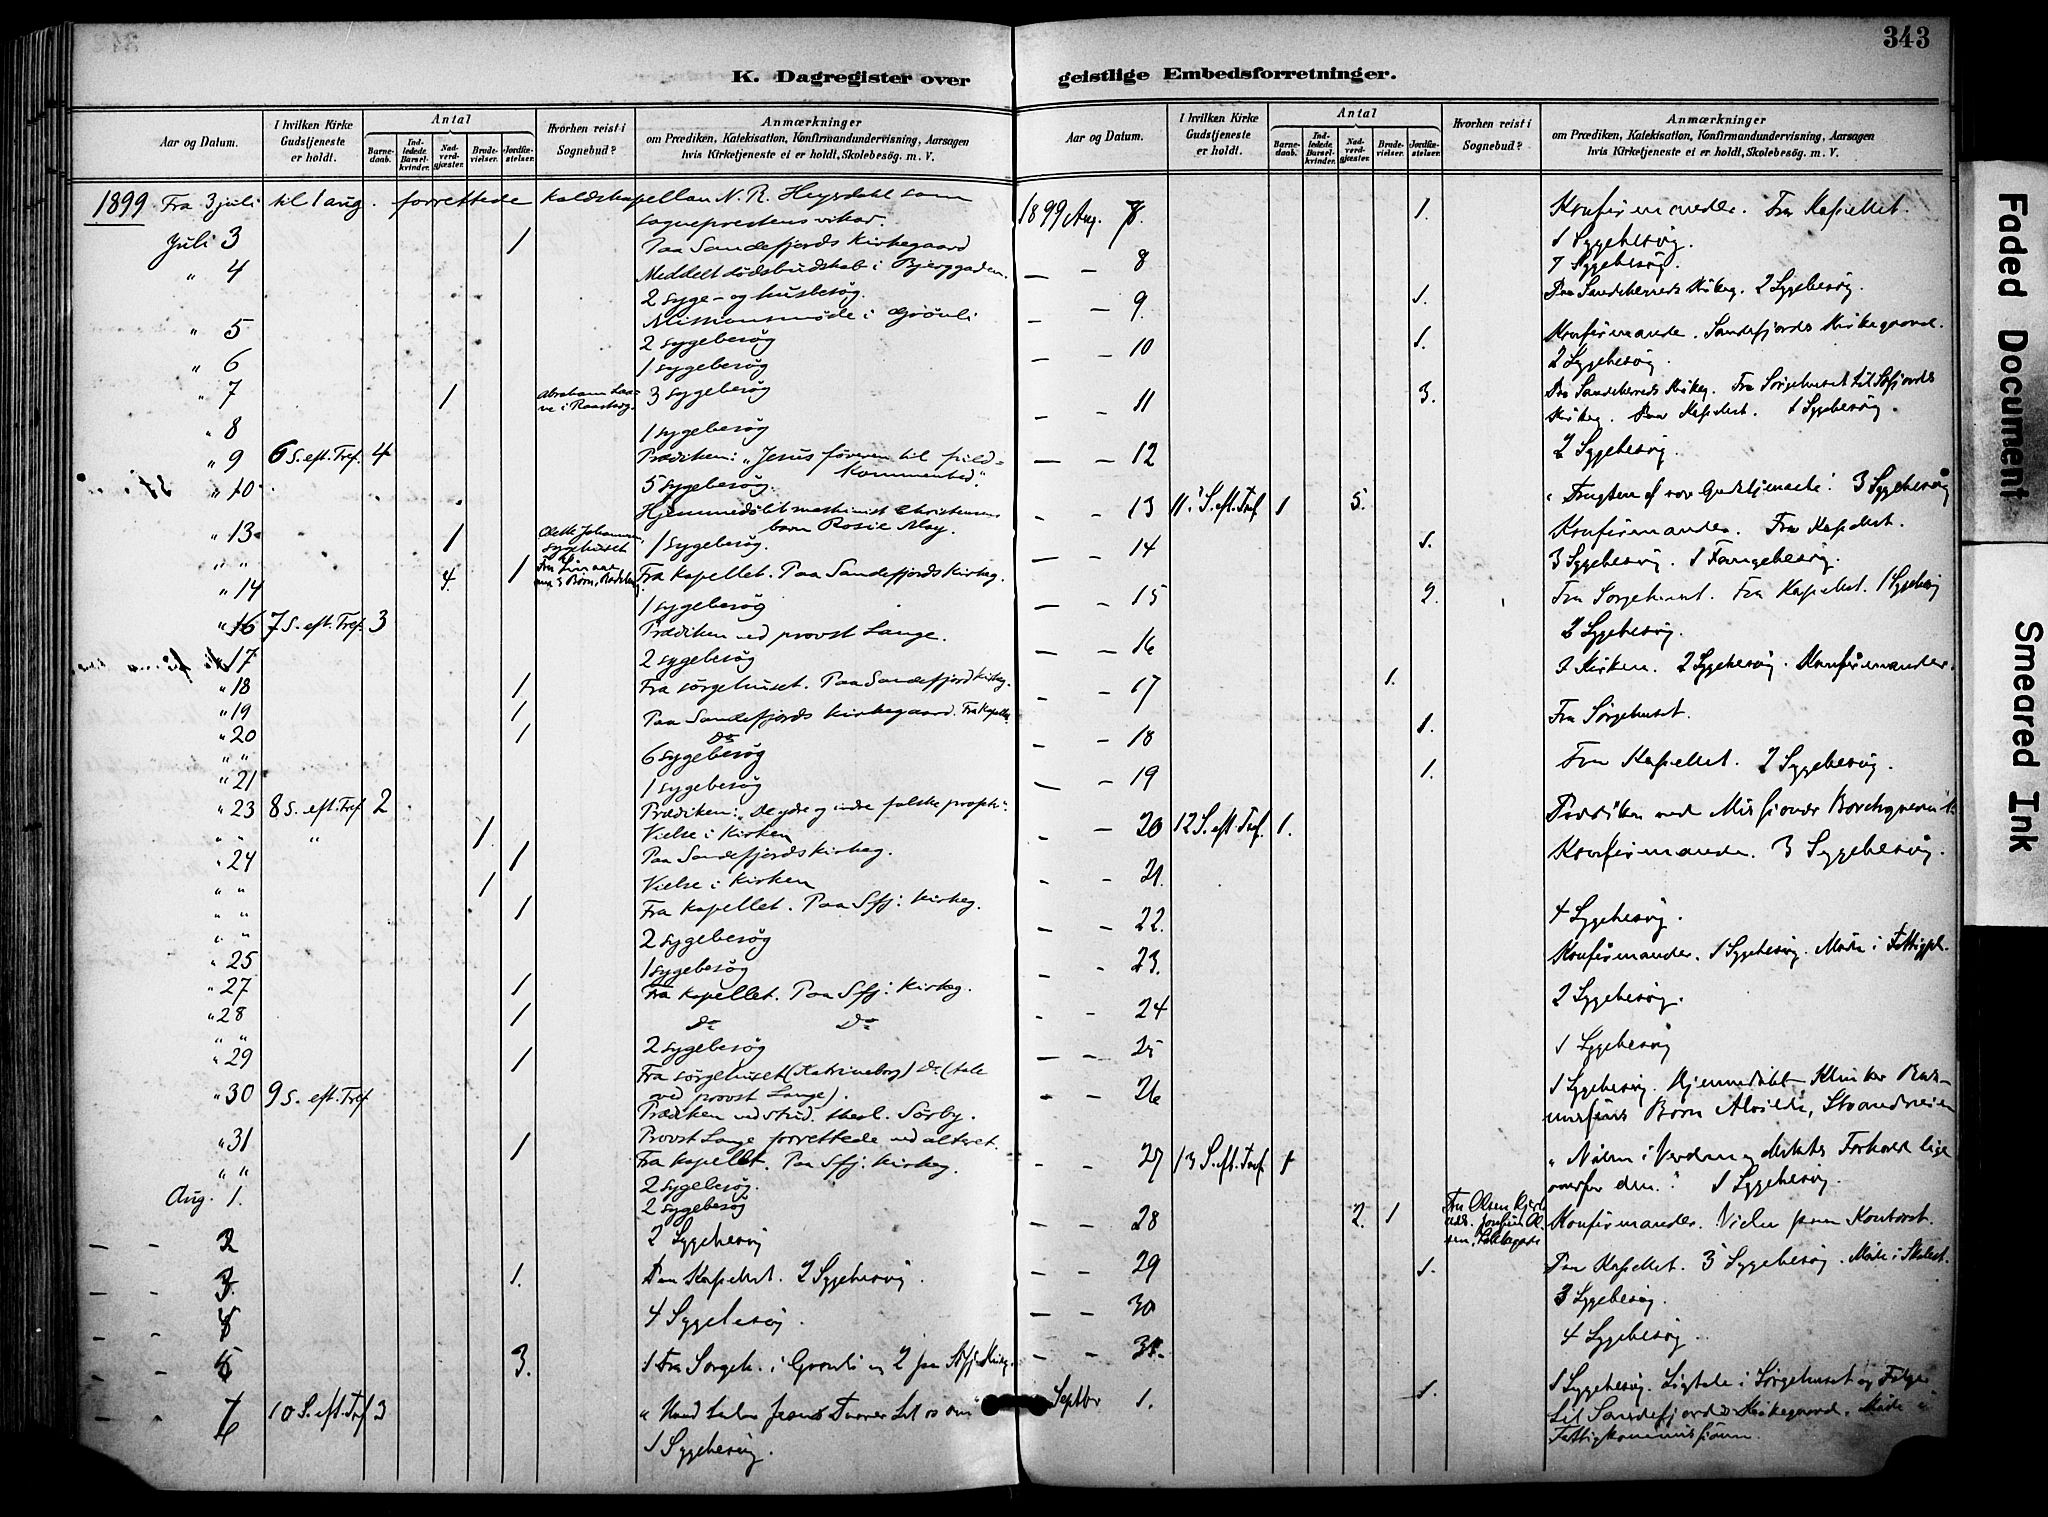 343
K. Dagregister over geistlige Embedsforretninger.
Aar og Datum.
I hvilken Kirke Gudstjeneste er holdt.
Antal
Barnedaab.
Indledede Barselkvinder.
Nadverdgjæster.
Brudevielser.
Jordfæstelser.
Hvorhen reist i Sognebud?
Anmærkninger
om Prædiken, Katekisation, Konfirmandundervisning, Aarsagen
hvis Kirketjeneste ei er holdt, Skolebesög. m. V.
1899 Fra 3 juli til 1 aug. forrettede kaldskapellan N. R. Heyerdahl som
sogneprestens vikar.
Juli 3 1 Paa Sandefjords Kirkegaard
" 4 Meddelt dödsbudskab i Bjerggaden.
2 syge- og husbesøg.
Missionsmøde i Grönli
" 5 2 sygebesøg
" 6 1 sygebesøg
" 7 1 Abraham i 3 sygebesøg
" 8 1 sygebesøg
" 9 6 S. eft. Tref. 4 Prædiken: "Jesus føreren til fuld-
kommenhed".
" 10 5 sygebesøg.
Hjemmedöbt maskinist Christensens
barn Rosie May.
" 13 1 Olette Johannsen, sygehuset 1 sygebesøg.
" " 4. 1 Fra kapellet. Paa Sandefjords Kirkeg.
" 14 1 sygebesøg
" 16 7 S. eft. Tref. 3 Prædiken ved provst Lange.
" 17 2 sygebesøg
" 18 1 Fra sørgehuset. Paa Sandefjord Kirkeg.
" 19 1 Paa Sandefjords Kirkegaard. Fra Kapellet
" 20 1 Do
" " 6 sygebesøg
" 21 1 sygebesøg
" 23 8 S. eft. Tref. 2 Prædiken: "De ydre og indre falske proph."
" " " 1 Vielse i Kirken
" 24 1 Paa Sandefjords Kirkeg.
" " 1 Vielse i Kirken
" " 1 Fra kapellet. Paa Sfj: Kirkeg.
" " 2 sygebesøg
" 25 1 sygebesøg
" 27 1 Fra kapellet. Paa Sfj: Kirkeg.
" 28 1 Do Do
" " 2 sygebesøg
" 29 1 Fra sørgehuset (Katrineborg) Do (tale
ved provst Lange).
" 30 9 S. eft. Tref Prædiken ved stud. theol. Sørby.
Provst Lange forrettede ved alteret.
" 31 1 Fra kapellet. Paa Sfj: Kirkeg.
" " 2 sygebesøg.
Aug. 1. 2 sygebesøg
- - 2 2 Sygebesøg
3. 1. Paa Kapellet. 2 Sygebesøg.
4 Sygebesøg.
- - 5 3. 1 Fra Sørgeh. i Grønli og 2 paa Sfj: Kirkeg.
- - 6 10 S. eft. Tref 3 Jesus
1 Sygebesøg.
Aar og Datum.
I hvilken Kirke Gudstjeneste er holdt.
Antal
Barnedaab.
Indledede Barselkvinder.
Nadverdgjæster.
Brudevielser.
Jordfæstelser.
Hvorhen reist i Sognebud?
Anmærkninger
om Prædiken, Katekisation, Konfirmandundervisning, Aarsagen
hvis Kirketjeneste ei er holdt, Skolebesög. m. V.
1899 Aug. 7. 1. Konfirmander. Fra Kapellet.
1 Sygebesøg.
- - 8 7 Sygebesøg.
- - 9 1. Paa Sandeherreds Kirkeg. 2 Sygebesøg.
- - 10 1. Konfirmander. Sandefjords Kirkegaard.
2 Sygebesøg.
- - 11 3. Paa Sandeherreds Kirkeg. Fra Sørgehuset til Sfjords
Kirkeg. Paa Kapellet. 1 Sygebesøg.
- - 12 2 Sygebesøg.
- - 13 11. S. eft. Tref 1 5. "Frugten af vor Gudstjeneste". 3 Sygebesøg
- - 14 1. Konfirmander. Fra Kapellet.
3 Sygebesøg. 1 Fangebesøg.
- - 15 2. Fra Sørgehuset. Fra Kapellet. 1 Sygebesøg
- - 16 2 Sygebesøg.
- - 17 1. I Kirken. 2 Sygebesøg. Konfirmander.
- - 18 1. Fra Sørgehuset.
- - 19 1. Fra Kapellet. 2 Sygebesøg.
- - 20 12 S. eft. Tref. 1. Prædiken ved Missionær Borchgrevink
- - 21. Konfirmander. 3 Sygebesøg.
- - 22. 4 Sygebesøg.
- - 23. Konfirmander. 1 Sygebesøg. Møde i Fattigk.
- - 24 2 Sygebesøg.
- - 25 1 Sygebesøg
- - 26 1 Sygebesøg. Hjemmedøbt
Barn Alvilde, Strandveien
- - 27 13 S. eft. Tref. 1 "Nøden i Verden og Forhold lige
overfor den." 1 Sygebesøg.
- - 28 2. 1 Fru Olsen Konfirmander. Vielse paa Kontoret.
- - 29 1. Paa Kapellet. 3 Sygebesøg. Møde i Skolest.
- - 30 3 Sygebesøg.
- - 31. 4 Sygebesøg.
Septbr 1. 1. 1 Sygebesøg. Ligtale i Sørgehuset og Følge
til Sandefjords Kirkegaard. Møde i
Fattigkommissionen.
Faded Document
Smeared Ink